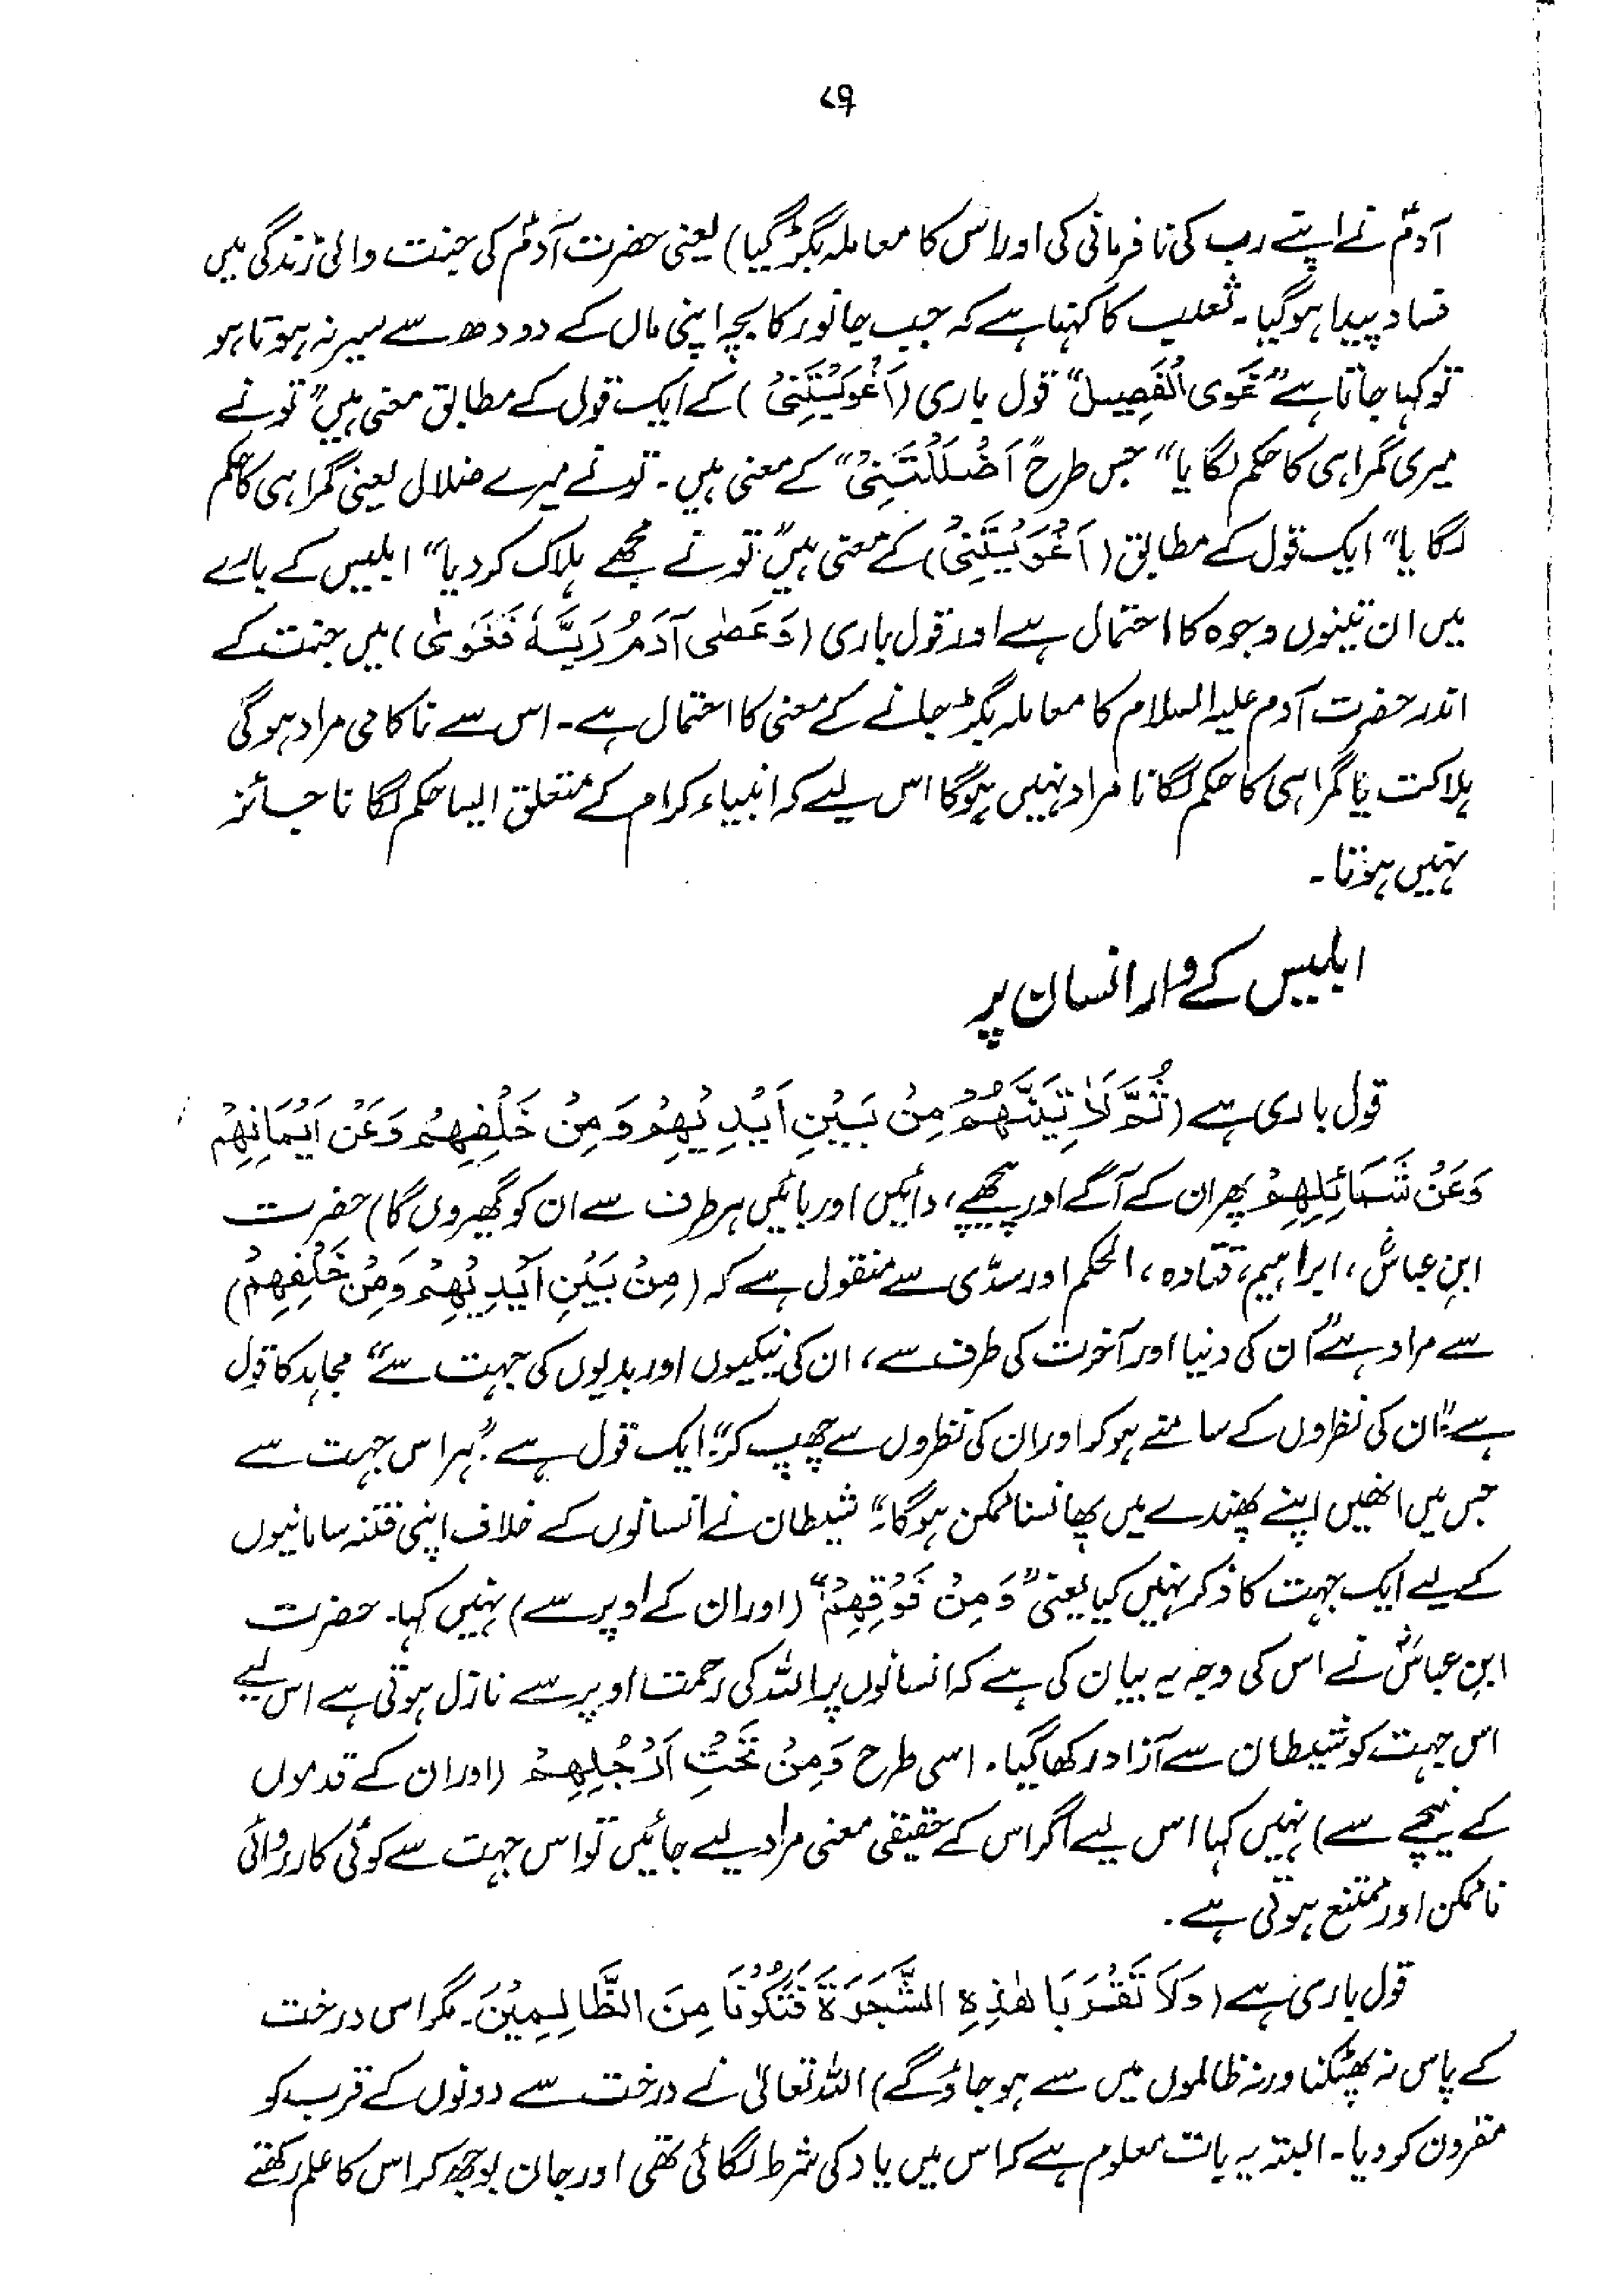 ۷۹
آدمؑ نے اپنے رب کی نافرمانی کی اور اس کا معاملہ بگڑ گیا) یعنی حضرت آدمؑ کی جنت والی زندگی میں
فساد پیدا ہوگیا۔ ثعلب کا کہنا ہے کہ جب جانور کا بچہ اپنی ماں کے دودھ سے سیر نہ ہوتا ہو
تو کہا جاتا ہے "غَوَی الْفَصِیلُ" قول باری (اَغْوَیْتَنِیْ) کے ایک قول کے مطابق معنی ہیں "تو نے
میری گمراہی کا حکم لگایا" جس طرح "اَضْلَلْتَنِیْ" کے معنی ہیں۔ تو نے میرے ضلال یعنی گمراہی کا حکم
لگایا" ایک قول کے مطابق (اَغْوَیْتَنِیْ) کے معنی ہیں "تو نے مجھے ہلاک کردیا" ابلیس کے بارے
میں ان تینوں وجوہ کا احتمال ہے اور قول باری (وَعَصٰی آدَمُ رَبَّہٗ فَغَوٰی) میں جنت کے
اندر حضرت آدم علیہ السلام کا معاملہ بگڑ جانے کے معنی کا احتمال ہے۔ اس سے ناکامی مراد ہوگی
ہلاکت یا گمراہی کا حکم لگانا مراد نہیں ہوگا اس لیے کہ انبیاء کرام کے متعلق ایسا حکم لگانا جائز
نہیں ہوتا۔
ابلیس کے وار انسان پر
قول باری ہے (ثُمَّ لَاٰتِیَنَّھُمْ مِنْ بَیْنِ اَیْدِیْھِمْ وَمِنْ خَلْفِھِمْ وَعَنْ اَیْمَانِھِمْ
وَعَنْ شَمَائِلِھِمْ پھر ان کے آگے اور پیچھے، دائیں اور بائیں ہر طرف سے ان کو گھیروں گا) حضرت
ابن عباسؓ، ابراہیم، قتادہ، الحکم اور سدّی سے منقول ہے کہ (مِنْ بَیْنِ اَیْدِیْھِمْ وَمِنْ خَلْفِھِمْ)
سے مراد ہے "ان کی دنیا اور آخرت کی طرف سے، ان کی نیکیوں اور بدیوں کی جہت سے" مجاہد کا قول
ہے: "ان کی نظروں کے سامنے ہوکر اور ان کی نظروں سے چھپ کر" ایک قول ہے: "ہر اس جہت سے
جس میں انھیں اپنے پھندے میں پھانسنا ممکن ہوگا۔" شیطان نے انسانوں کے خلاف اپنی فتنہ سامانیوں
کے لیے ایک جہت کا ذکر نہیں کیا یعنی "وَمِنْ فَوْقِھِمْ" (اور ان کے اوپر سے) نہیں کہا۔ حضرت
ابن عباسؓ نے اس کی وجہ یہ بیان کی ہے کہ انسانوں پر اللہ کی رحمت اوپر سے نازل ہوتی ہے اس لیے
اس جہت کو شیطان سے آزاد رکھا گیا۔ اسی طرح وَمِنْ تَحْتِ اَرْجُلِھِمْ (اور ان کے قدموں
کے نیچے سے) نہیں کہا اس لیے اگر اس کے حقیقی معنی مراد لیے جائیں تو اس جہت سے کوئی کارروائی
ناممکن اور ممتنع ہوتی ہے۔
قول باری ہے (وَلَا تَقْرَبَا ھٰذِہِ الشَّجَرَةَ فَتَکُوْنَا مِنَ الظَّالِمِیْنَ۔ مگر اس درخت
کے پاس نہ پھٹکنا ورنہ ظالموں میں سے ہو جاؤ گے) اللہ تعالیٰ نے درخت سے دونوں کے قرب کو
مقرون کر دیا۔ البتہ یہ بات معلوم ہے کہ اس میں یاد کی شرط لگائی تھی اور جان بوجھ کر اس کا علم رکھتے